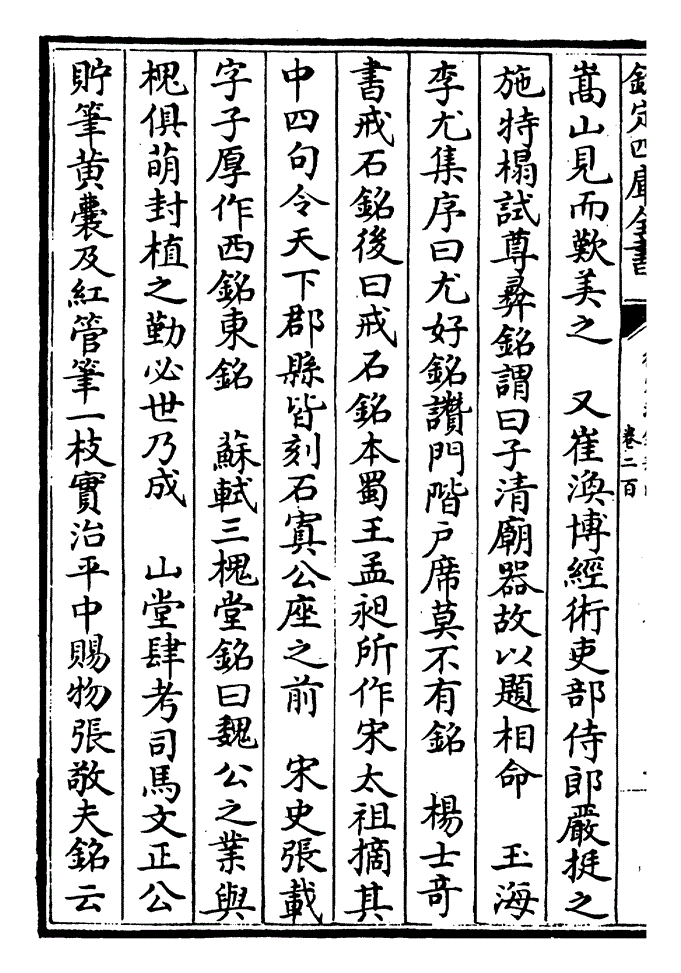 欽定四庫全書
卷二百
嵩山見而歎美之　又崔渙博經術吏部侍郎嚴挺之
施特榻試尊彛銘謂曰子清廟器故以題相命　玉海
李尤集序曰尤好銘讚門階户席莫不有銘　楊士竒
書戒石銘後曰戒石銘本蜀王孟昶所作宋太祖摘其
中四句令天下郡縣皆刻石寘公座之前　宋史張載
字子厚作西銘東銘　蘇軾三槐堂銘曰魏公之業與
槐俱萌封植之勤必世乃成　山堂肆考司馬文正公
貯筆黄囊及紅管筆一枝實治平中賜物張敬夫銘云